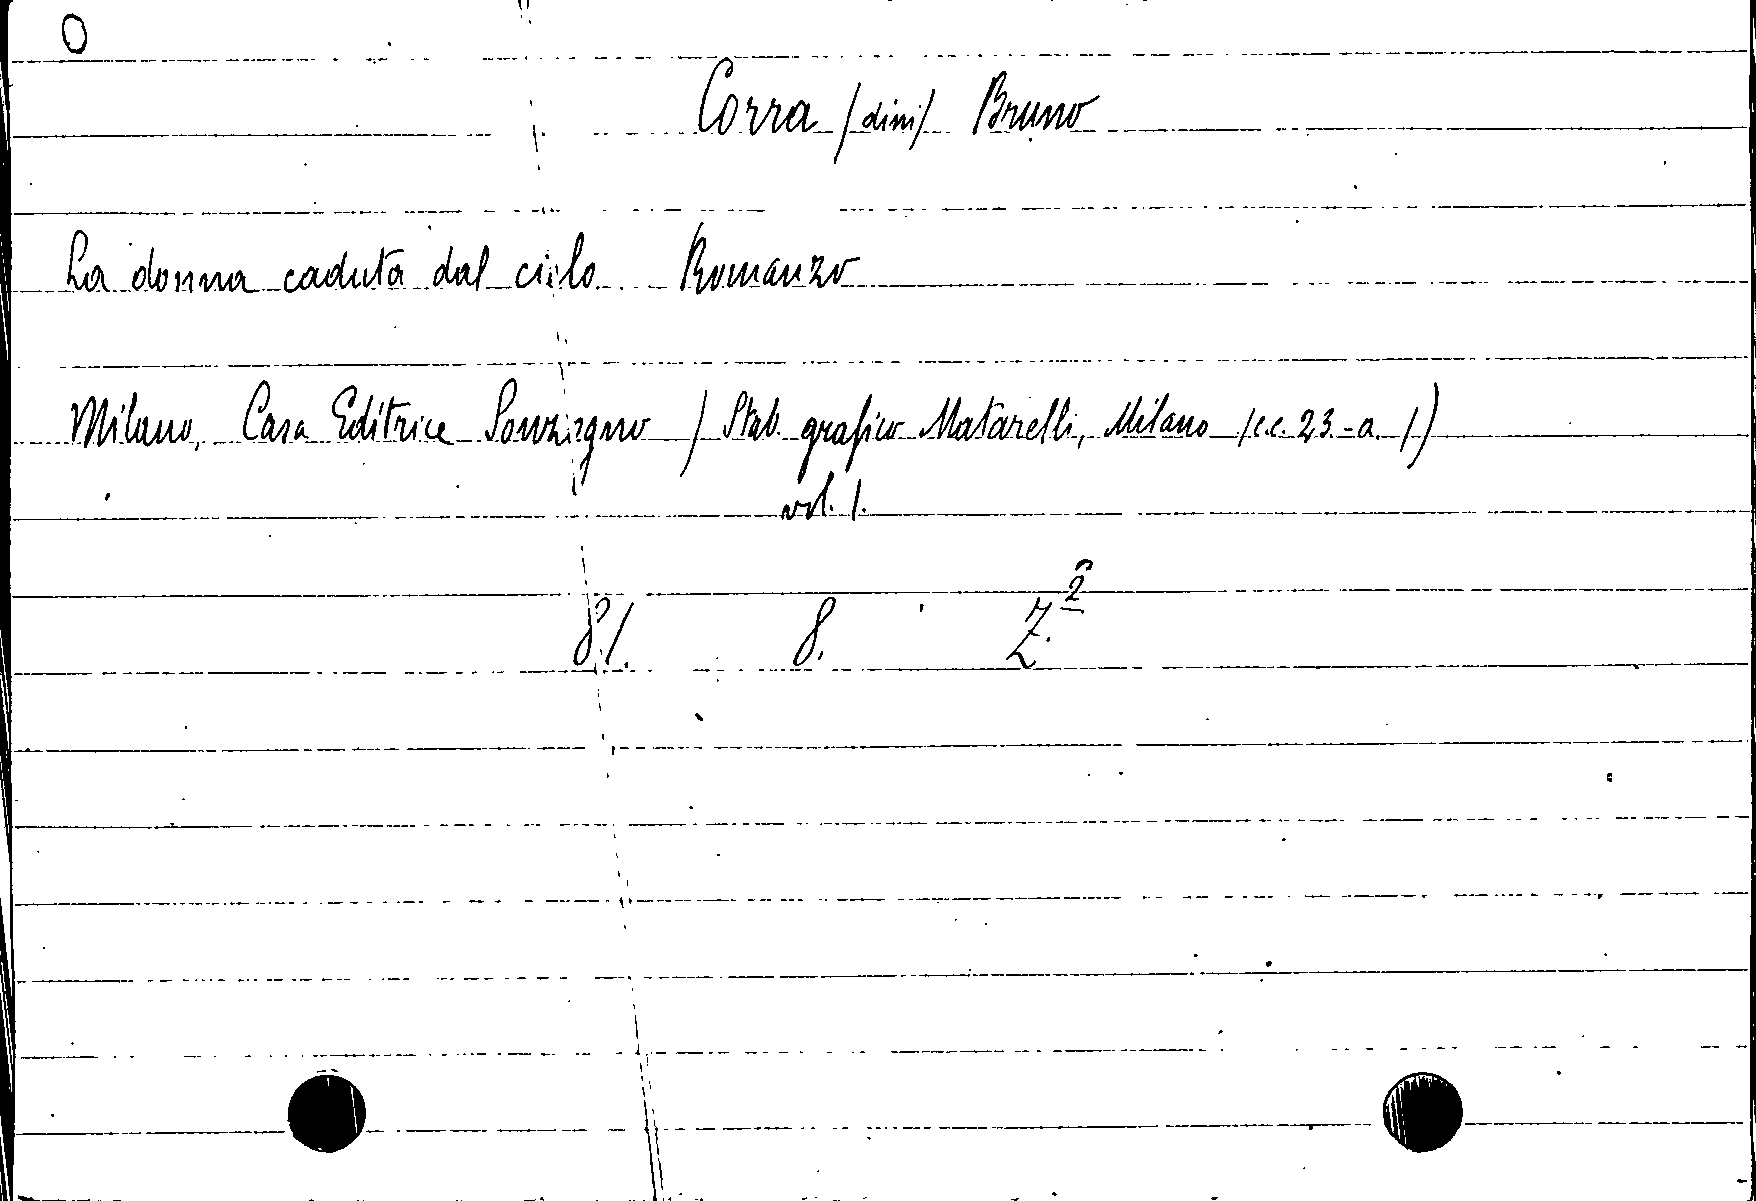 0
Corra (dini) Bruno
La donna caduta dal cielo. Romanzo
Milano, Casa Editrice Sonzogno (Stab. grafico Matarelli, Milano (c.c. 23.-a. 1)
vol. 1.
81. 8. Z.2